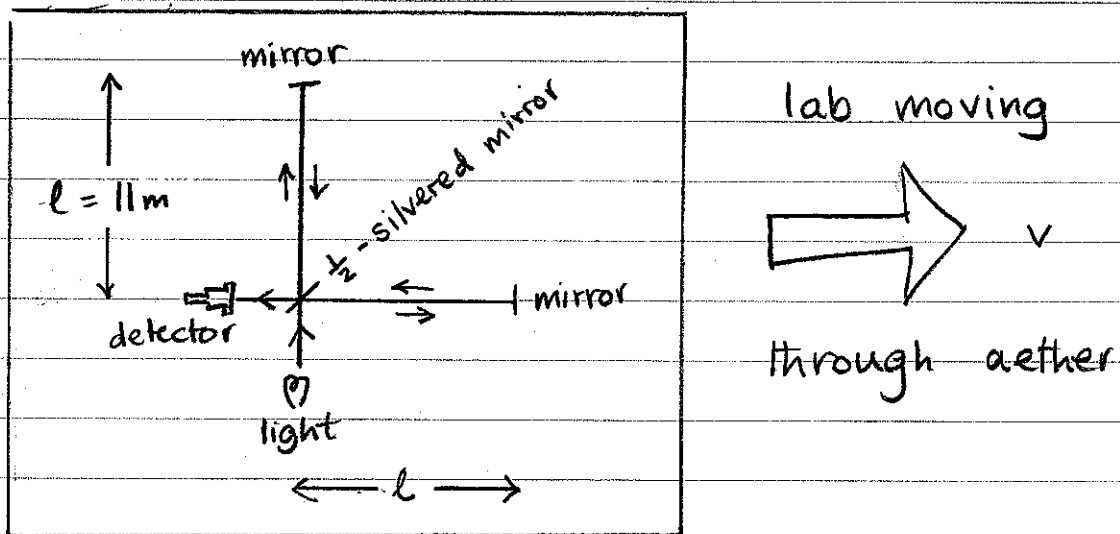 mirror
½-silvered mirror
l = 11m
mirror
detector
light
l
lab moving
v
through aether